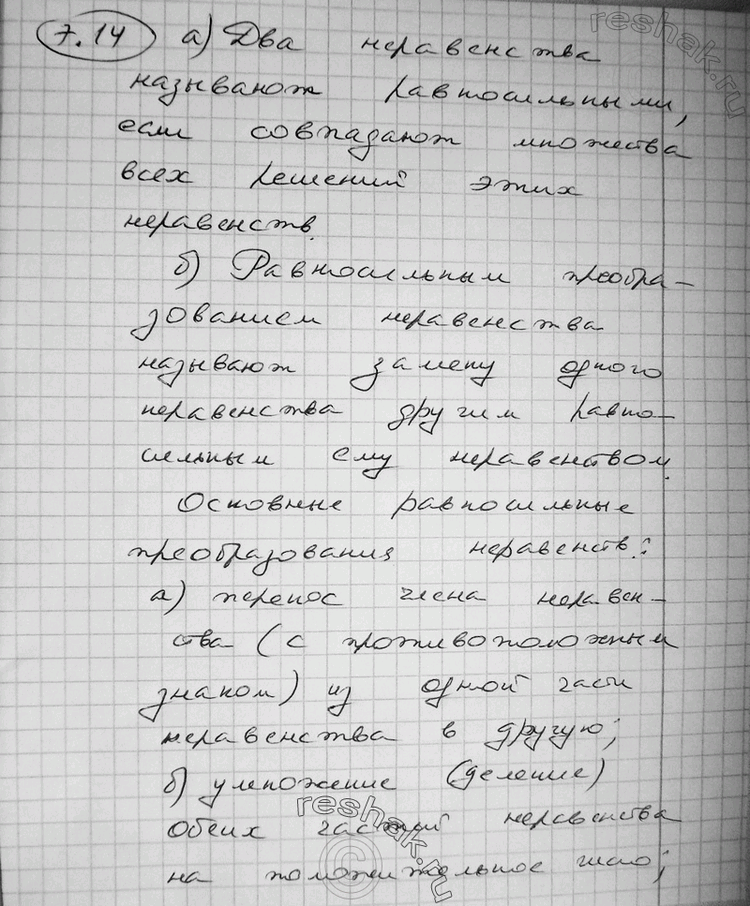 7.14 а) Два неравенства
называют равносильными,
если совпадают множества
всех решений этих
неравенств.
б) Равносильным преобра-
зованием неравенства
называют замену одного
неравенства другим равно-
сильным ему неравенством.
Основные равносильные
преобразования неравенств:
а) перенос члена неравен-
ства (с противоположным
знаком) из одной части
неравенства в другую;
б) умножение (деление)
обеих частей неравенства
на положительное число;
reshak.ru
reshak.ru
©